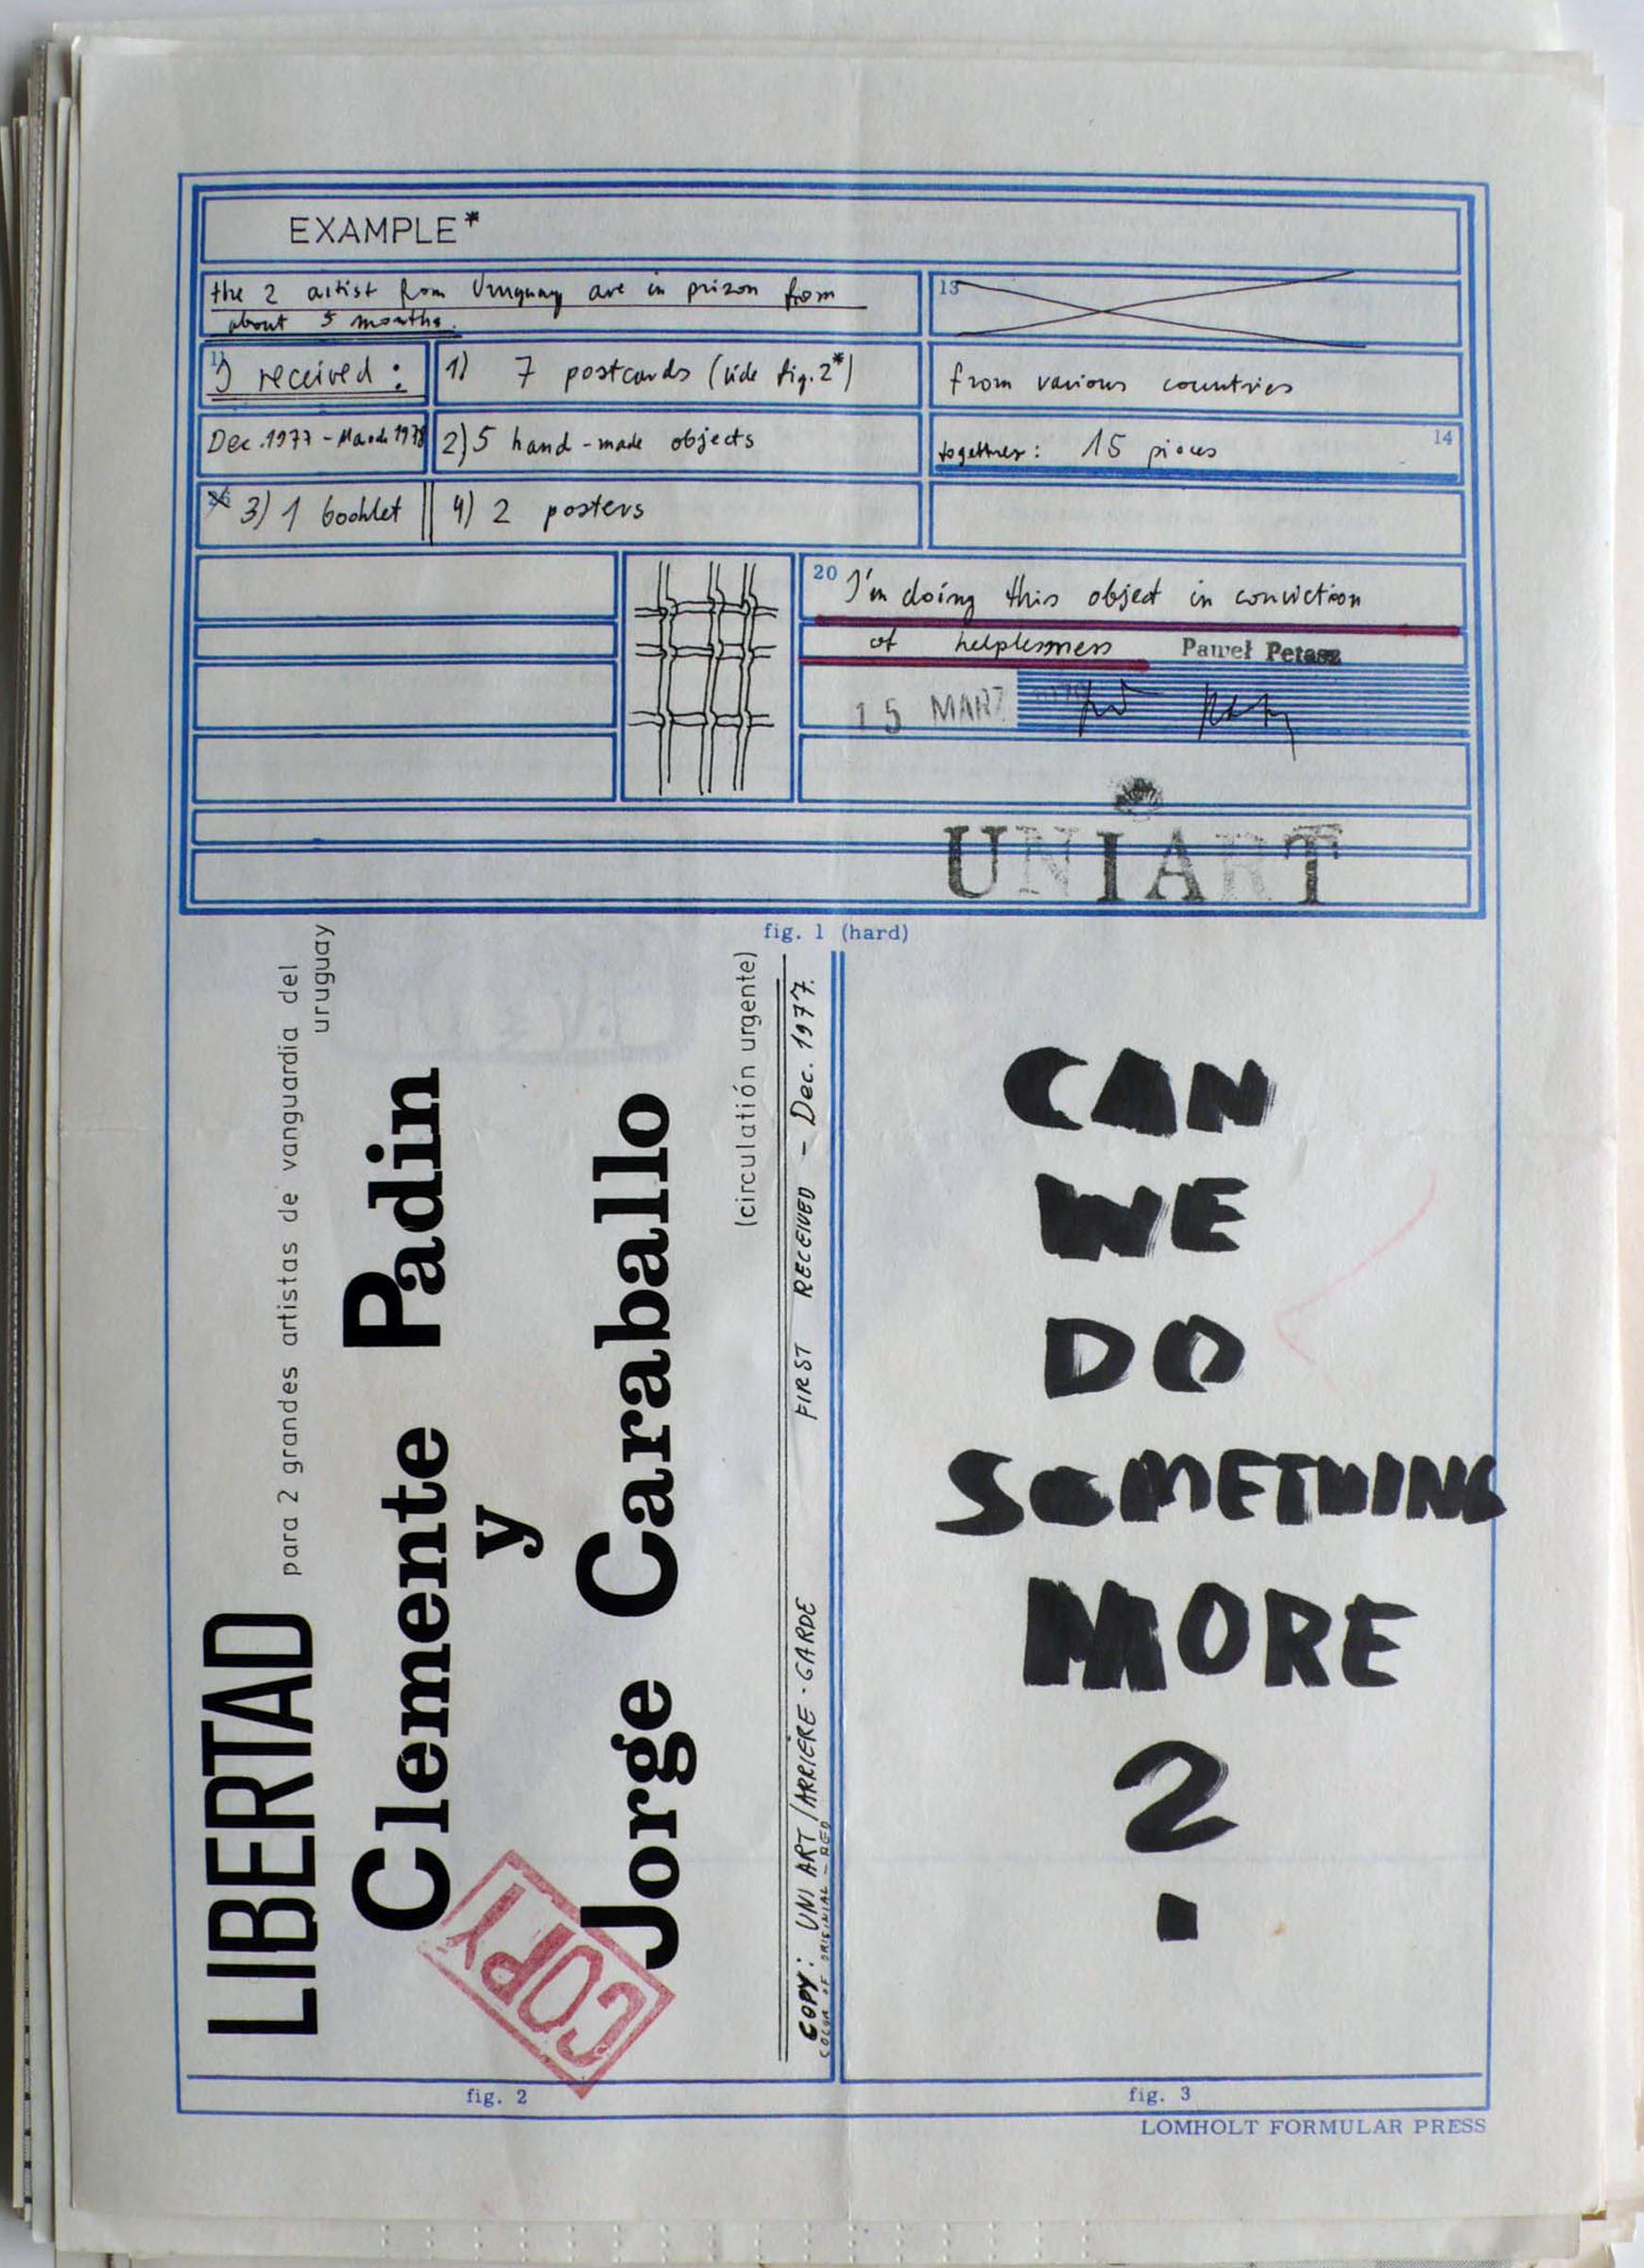 EXAMPLE*
the 2 artist from Uruguay are in prizon from
about 5 months.
13
11
I received:
1) 7 postcards (vide fig. 2*)
from various countries
Dec. 1977 - March 1978
2) 5 hand-made objects
together: 15 pieces
14
3) 1 booklet
4) 2 posters
20
I'm doing this object in conviction
of helplessness
Paweł Petasz
15 MARZ
UNIART
fig. 1 (hard)
LIBERTAD para 2 grandes artistas de vanguardia del
uruguay
Clemente Padin
y
Jorge Caraballo
(circulatión urgente)
COPY
COPY: UNI ART/ARRIÈRE-GARDE FIRST RECEIVED - Dec. 1977.
COLOR OF ORIGINAL - RED
fig. 2
CAN
WE
DO
SOMETHING
MORE
?
fig. 3
LOMHOLT FORMULAR PRESS